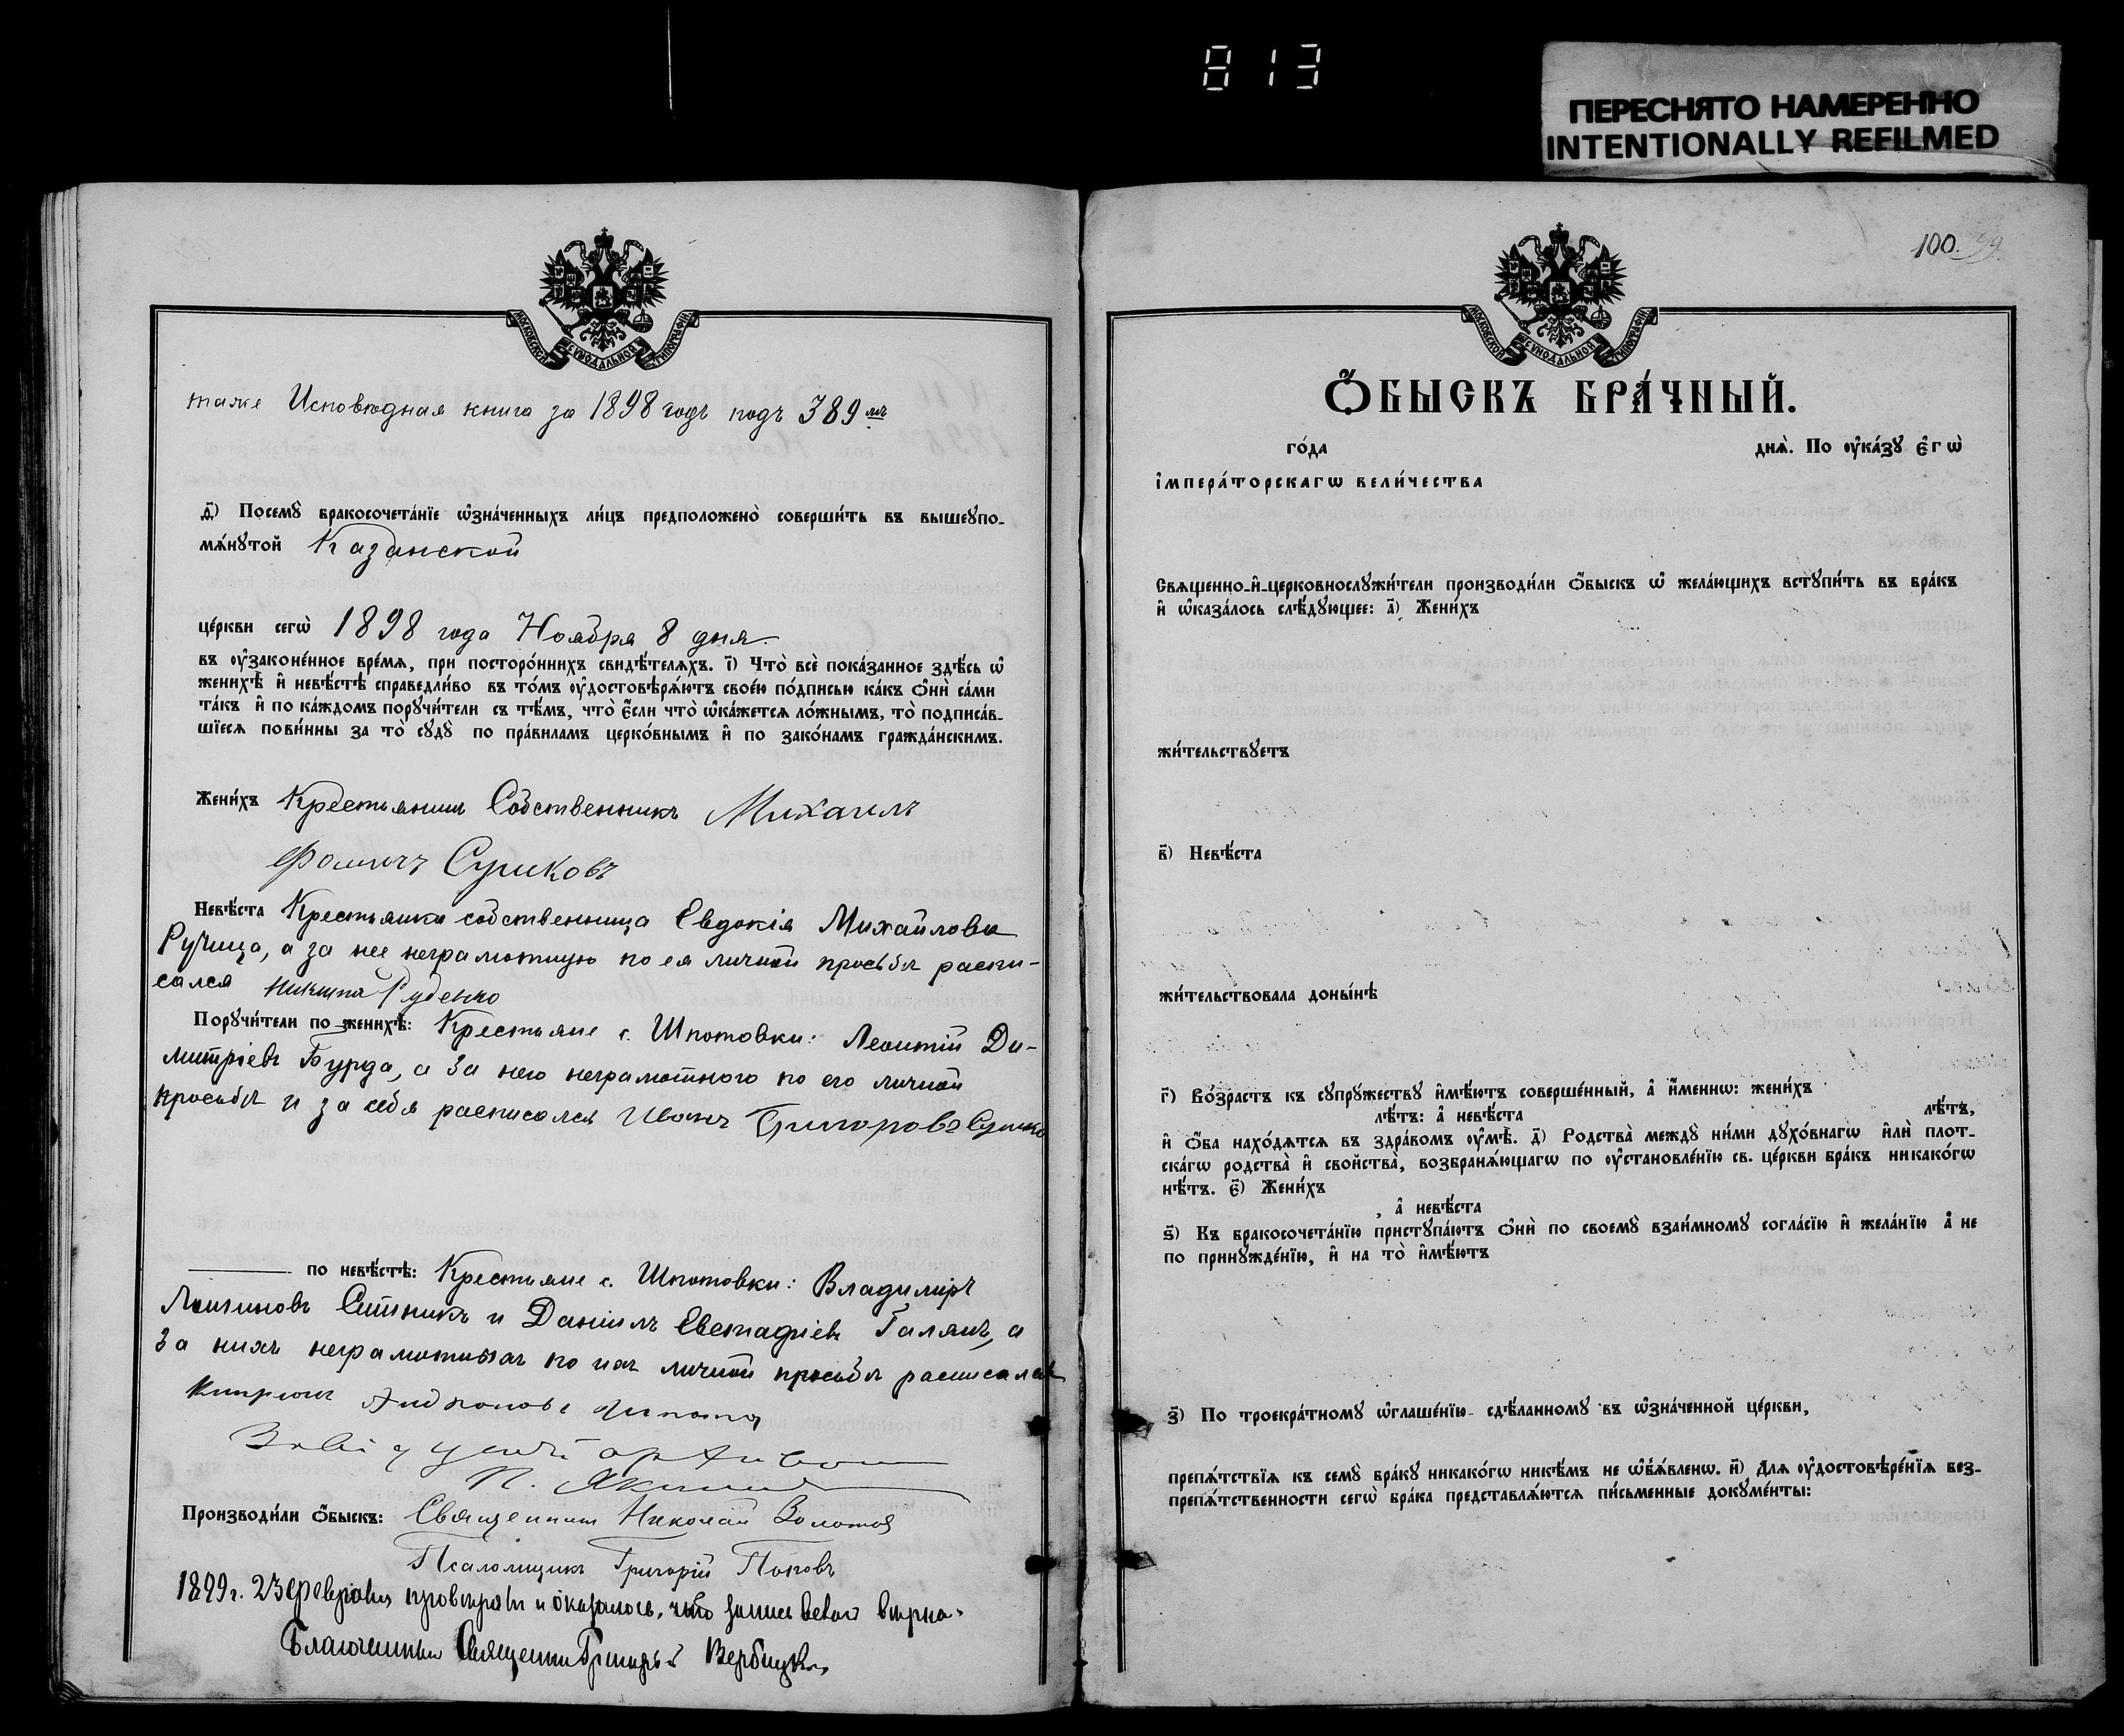 813
ПЕРЕСНЯТО НАМЕРЕННО
INTENTIONALLY REFILMED
МОСКОВСКОЙ СѴНОДАЛЬНОЙ ТѴПОГРАФІИ
также Исповѣдная книга за 1898 годъ подъ 389 мъ
д҃) Посемꙋ̀ бракосочета́нїе ѡ҆зна́ченныхъ ли́цъ предположено̀ соверши́ть въ вышеꙋпо-
мѧ́нꙋтой Казанской
це́ркви сегѡ̀ 1898 года Ноября 8 дня
въ ᲂу҆законе́нное вре́мѧ, при посторо́ннихъ свидѣ́телѧхъ. і҃) Что̀ всѐ пока́занное здѣ́сь ѡ҆
женихѣ̀ и҆ невѣ́стѣ справедли́во въ то́мъ ᲂу҆достовѣрѧ́ютъ свое́ю по́дписью ка́къ ѻ҆нѝ са́ми
та́къ и҆ по ка́ждомъ порꙋчи́тели съ тѣ́мъ, что̀ є҆́сли что̀ ѡ҆ка́жетсѧ ло́жнымъ, то̀ подписа́в-
шїесѧ пови́нны за то̀ сꙋдꙋ̀ по пра́виламъ церко́внымъ и҆ по зако́намъ гражда́нскимъ.
Жени́хъ Крестьянинъ Собственникъ Михаилъ
Фоминъ Сушковъ
Невѣ́ста Крестьянка собственница Евдокія Михайлова
а за нее неграмотную по ея личной просьбѣ распи-
сался Никита Руденко
Порꙋчи́тели по женихѣ̀: Крестьяне с. Шпотовки: Леонтій Ди-
митріевъ Бурда, а за него неграмотнаго по его личной
просьбѣ и за себя расписался Иванъ Григоровъ Сушко
по невѣ́стѣ: Крестьяне с. Шпотовки: Владиміръ
Логиновъ Ситникъ и Даніилъ Евстафіевъ Галянъ, а
за нихъ неграмотныхъ по ихъ личной просьбѣ расписался
Кипріянъ Андроновъ
Производи́ли ѻ҆́быскъ: Священникъ Николай Золотов
Псаломщикъ Григорій Поповъ
1899 г. 23 февраля провѣрялъ и оказалось, что запись вѣрна.
Благочинный Священникъ Григорій Вербицкій
100. 99.
МОСКОВСКОЙ СѴНОДАЛЬНОЙ ТѴПОГРАФІИ
Ѻ҆́БЫСКЪ БРА́ЧНЫЙ.
го́да днѧ̀. По ᲂу҆ка́зꙋ є҆гѡ̀
і҆мпера́торскагѡ вели́чества
Свѧщенно-и҆-церковнослꙋжи́тели производи́ли ѻ҆́быскъ ѡ҆ жела́ющихъ встꙋпи́ть въ бра́къ
и҆ ѡ҆каза́лось слѣ́дꙋющее: а҃) Жени́хъ
жи́тельствꙋетъ
в҃) Невѣ́ста
жи́тельствовала доны́нѣ
г҃) Во́зрастъ къ сꙋпрꙋ́жествꙋ и҆мѣ́ютъ соверше́нный, а҆ и҆́менно: жени́хъ
лѣ́тъ: а҆ невѣ́ста лѣ́тъ,
и҆ ѻ҆́ба нахо́дѧтсѧ въ здра́вомъ ᲂу҆мѣ̀. д҃) Родства̀ междꙋ̀ ни́ми дꙋхо́внагѡ и҆лѝ плот-
ска́гѡ родства̀ и҆ свойства̀, возбранѧ́ющагѡ по ᲂу҆становле́нїю св. це́ркви бра́къ никако́гѡ
нѣ́тъ. є҃) Жени́хъ
, а҆ невѣ́ста
ѕ҃) Къ бракосочета́нїю пристꙋпа́ютъ ѻ҆нѝ по своемꙋ̀ взаи́мномꙋ согла́сїю и҆ жела́нїю а҆ не
по принꙋжде́нїю, и҆ на то̀ и҆мѣ́ютъ
з҃) По троекра́тномꙋ ѡ҆глаше́нїю сдѣ́ланномꙋ въ ѡ҆зна́ченной це́ркви,
препѧ́тствїѧ къ семꙋ̀ бра́кꙋ никако́гѡ никѣ́мъ не ѡ҆б̾ѧ́влено. и҃) Длѧ ᲂу҆достовѣре́нїѧ без-
препѧ́тственности сегѡ̀ бра́ка представлѧ́ютсѧ пи́сьменные докꙋме́нты: